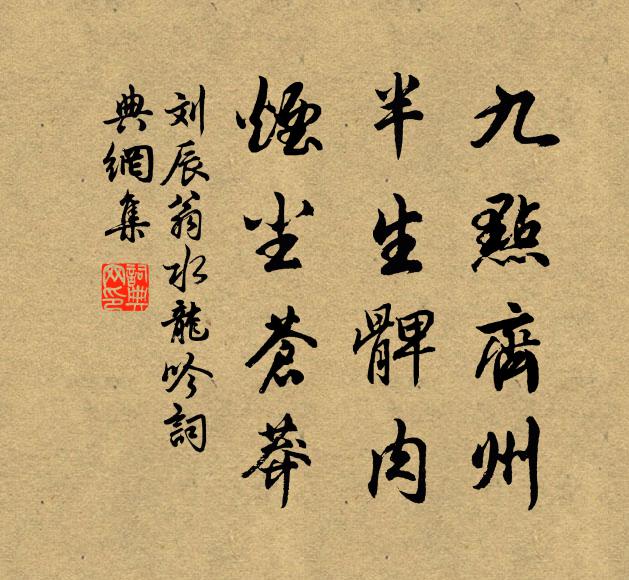 九點齊州
半生髀肉
煙尘蒼莽
刘辰翁水龍吟詞
典網集
詞典網印